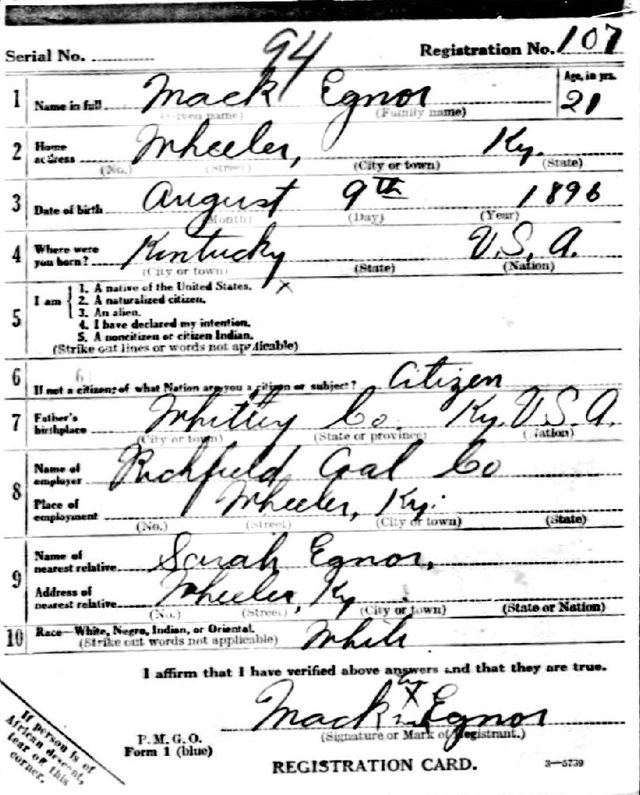 Serial No. 94 Registration No. 107
1 Name in full Mack Egnor Age, in yrs. 21
(Given name) (Family name)
2 Home address Wheeler, Ky.
(No.) (Street) (City or town) (State)
3 Date of birth August 9th 1896
(Month) (Day) (Year)
4 Where were you born? Kentucky U.S.A.
(City or town) (State) (Nation)
5 I am
1. A native of the United States. x
2. A naturalized citizen.
3. An alien.
4. I have declared my intention.
5. A noncitizen or citizen Indian.
(Strike out lines or words not applicable)
6 If not a citizen, of what Nation are you a citizen or subject? Citizen
7 Father's birthplace Whitley Co. Ky. U.S.A.
(City or town) (State or province) (Nation)
8 Name of employer Richfield Coal Co
Place of employment Wheeler, Ky.
(No.) (Street) (City or town) (State)
9 Name of nearest relative Sarah Egnor,
Address of nearest relative Wheeler, Ky
(No.) (Street) (City or town) (State or Nation)
10 Race—White, Negro, Indian, or Oriental. White
(Strike out words not applicable)
I affirm that I have verified above answers and that they are true.
Mack x Egnor
(Signature or Mark of Registrant.)
P. M. G. O.
Form 1 (blue)
REGISTRATION CARD. 3—5739
If person is of
African descent,
tear off this
corner.